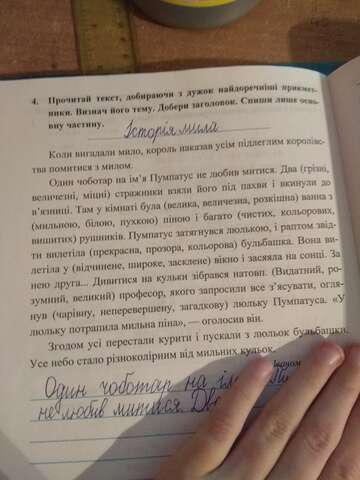 4. Прочитай текст, добираючи з дужок найдоречніші прикмет-
ники. Визнач його тему. Добери заголовок. Спиши лише осно-
вну частину.
Історія мила
Коли вигадали мило, король наказав усім підлеглим королівс-
тва помитися з милом.
Один чоботар на ім'я Пумпатус не любив митися. Два (грізні,
величезні, міцні) стражники взяли його під пахви і вкинули до
в'язниці. Там у кімнаті була (велика, величезна, розкішна) ванна з
(мильною, білою, пухкою) піною і багато (чистих, кольорових,
вишитих) рушників. Пумпатус затягнувся люлькою, і раптом звід-
ти вилетіла (прекрасна, прозора, кольорова) бульбашка. Вона ви-
летіла у (відчинене, широке, засклене) вікно і засяяла на сонці. За
нею друга... Дивитися на кульки зібрався натовп. (Видатний, ро-
зумний, великий) професор, якого запросили все з'ясувати, огля-
нув (чарівну, неперевершену, загадкову) люльку Пумпатуса. «У
люльку потрапила мильна піна», — оголосив він.
Згодом усі перестали курити і пускали з люльок бульбашки.
Усе небо стало різноколірним від мильних кульок.
Один чоботар на ім'
не любив митися. Два